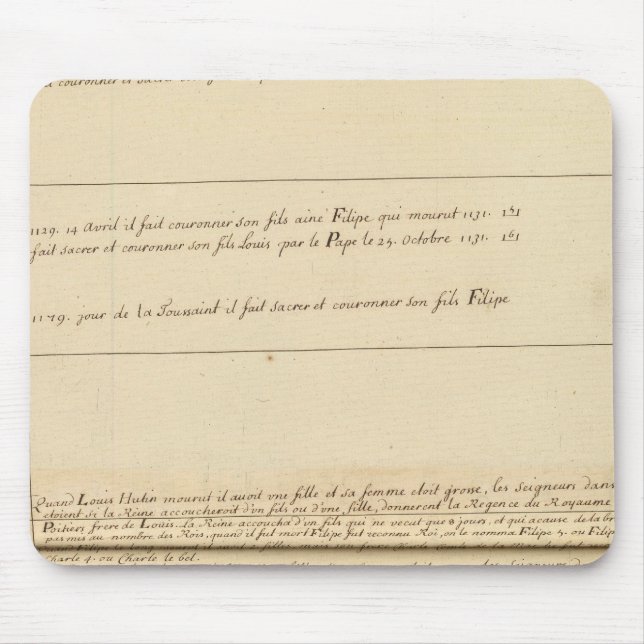 couronner et sacrer
1129. 14 Avril il fait couronner son fils ainé Filipe qui mourut 1131. |5|
fait sacrer et couronner son fils Louis par le Pape le 25. Octobre 1131. |6|
1179. jour de la Toussaint il fait sacrer et couronner son fils Filipe
Quand Louis Hutin mourut il auoit vne fille et sa femme etoit grosse, les Seigneurs dans
etoient si la Reine accoucheroit d'vn fils ou d'vne fille, donnerent la Regence du Royaume
Poitiers frere de Louis. la Reine accoucha d'vn fils qui ne vecut que 8 jours, et qui acause de la br
pas mis au nombre des Rois, quand il fut mort Filipe fut reconnu Roi, on le nomma Filipe 5. ou Filip
Charle 4. ou Charle le bel.